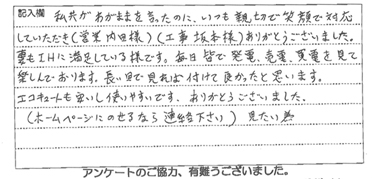 記入欄
私共がわがままを言ったのに、いつも親切で笑顔で対応
していただき(営業 内田様)(工事 坂本様)ありがとうございました。
妻もIHに満足している様です。毎日皆で発電、売電、買電を見て
楽しんでおります。長い目で見れば付けて良かったと思います。
エコキュートも安いし使いやすいです。ありがとうございました。
(ホームページにのせるなら連絡下さい) 見たい為
アンケートのご協力、有難うございました。